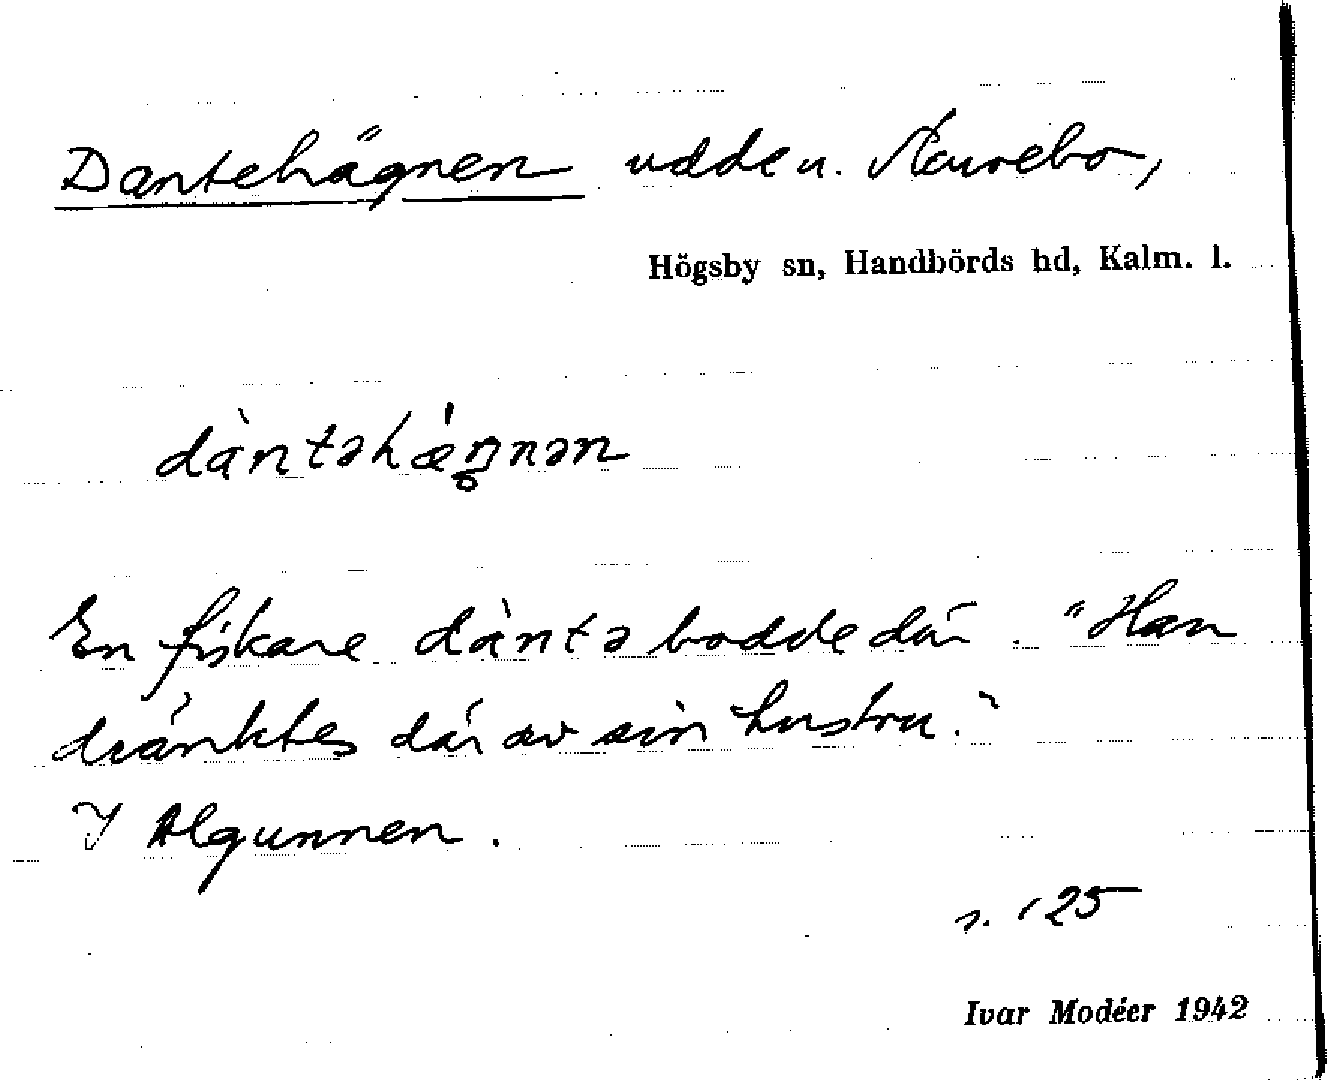 Dantehägnen udde u. Naurebo,
Högsby sn, Handbörds hd, Kalm. l.
dàntəhæ̀ŋnən
En fiskare dàntə bodde där. "Han
dränktes där av sin hustru."
I Algunnen.
s. 125
Ivar Modéer 1942